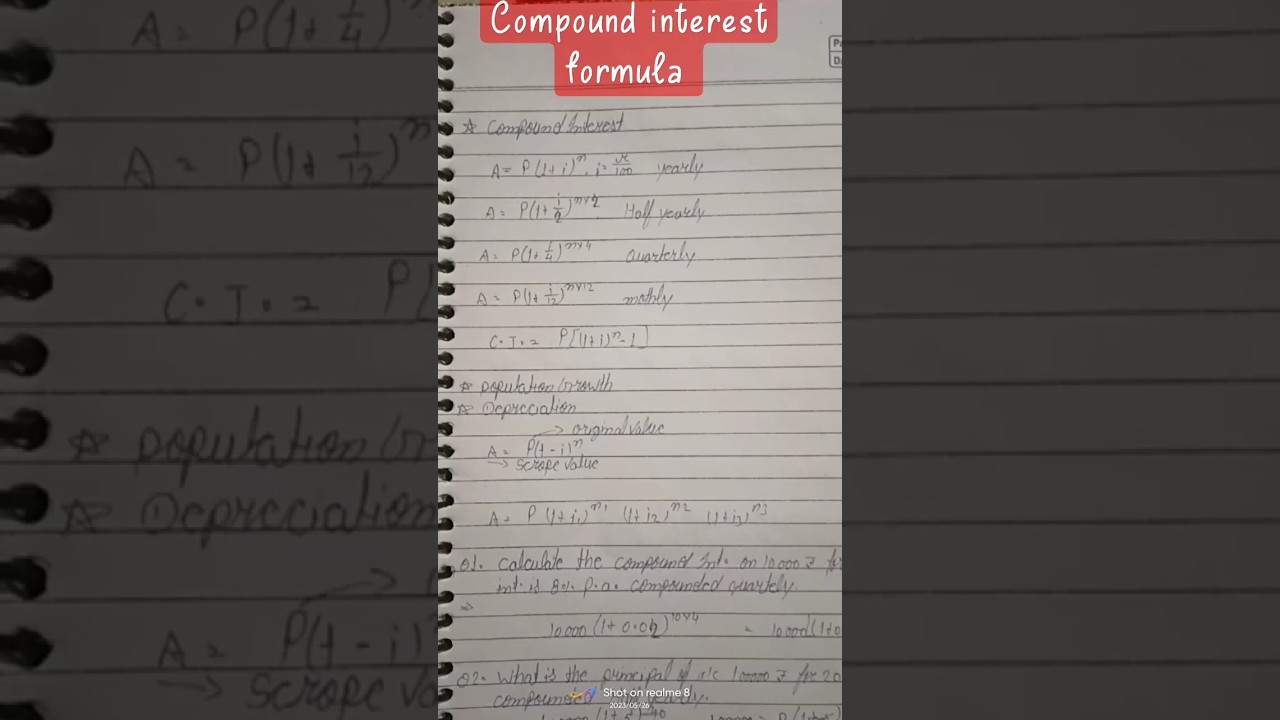 Compound interest
formula
☆ Compound Interest
A = P(1+i)^n, i = r/100 yearly
A = P(1+i/2)^n×2 Half yearly
A = P(1+i/4)^n×4 Quarterly
A = P(1+i/12)^n×12 mothly
C.I. = P[(1+i)^n-1]
☆ Population Growth
☆ Depreciation
→ original value
A = P(1-i)^n
→ scrape value
A = P (1+i1)^n1 (1+i2)^n2 (1+i3)^n3
Q1. Calculate the compound Int. on 10000 ₹ for
int. is 8% p.a. compounded quartely.
⇒
10000 (1+0.02)^10×4 = 10000(1+0
Q2. What is the principal of 10000 ₹ for 20
compounded
Shot on realme 8
2023/05/26
A = P(1+i/4)
A = P(1+i/12)^n
C.I. = P[
☆ Population Gr
☆ Depreciation
A = P(1-i)
→ scrape value